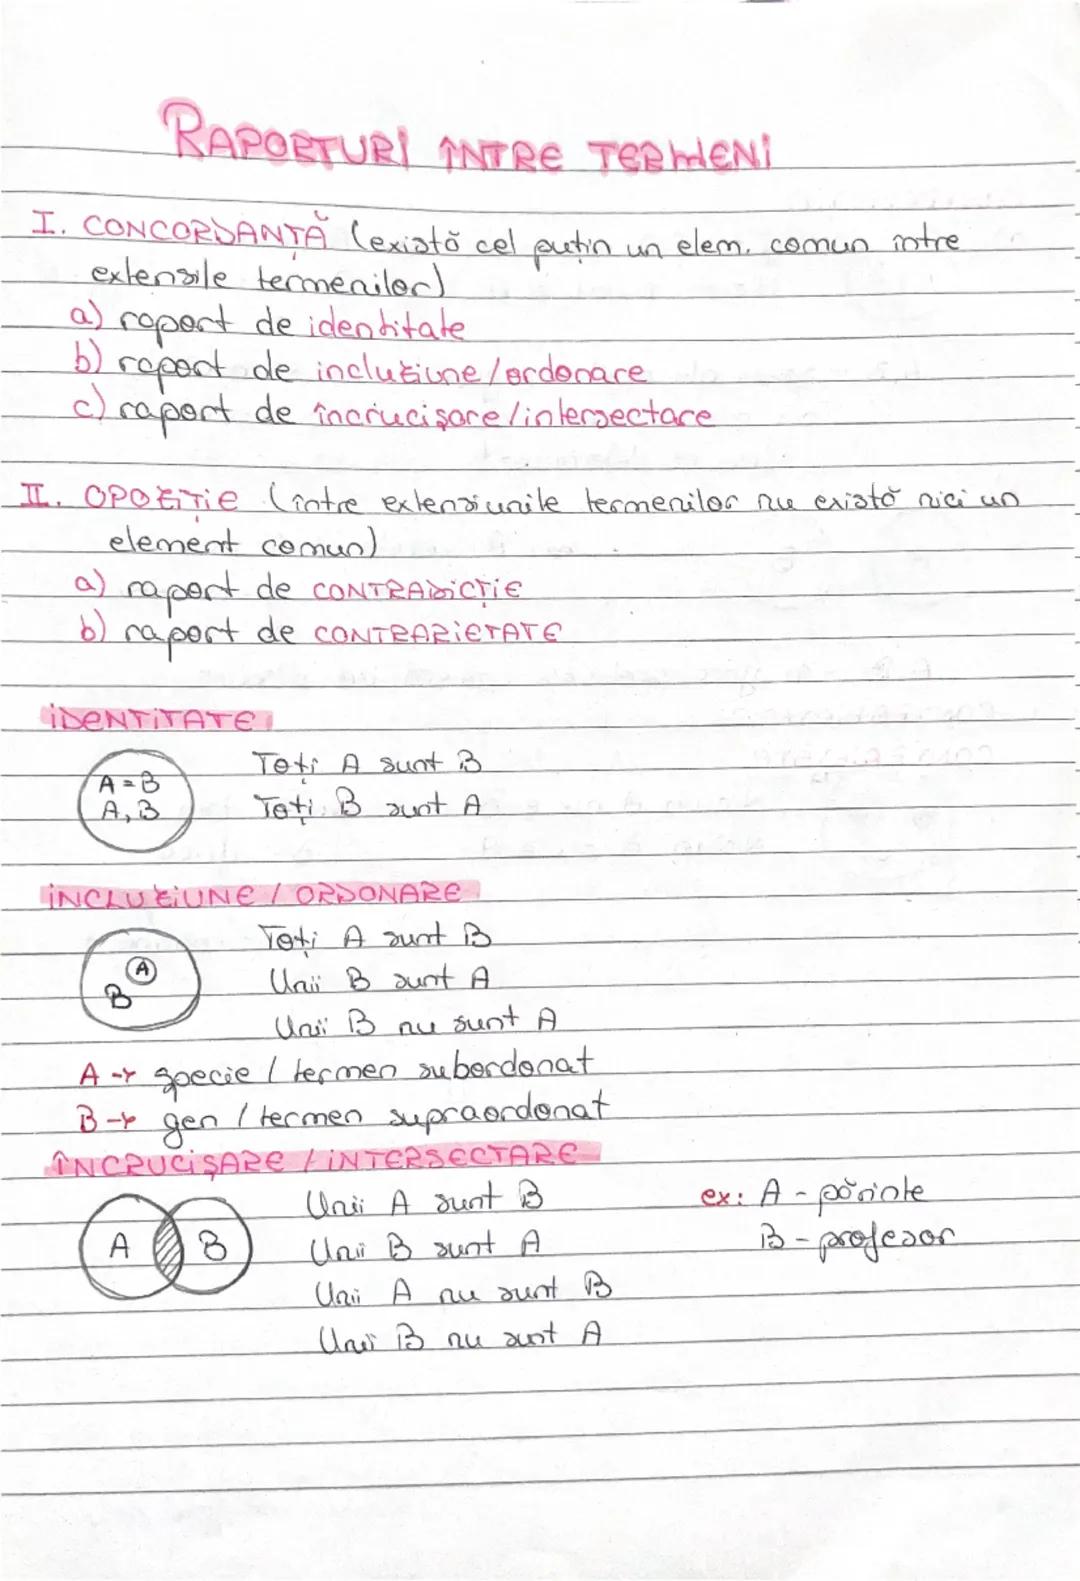 RAPORTURI ÎNTRE TERMENI
I. CONCORDANȚĂ (există cel puțin un elem. comun între
extensile termenilor)
a) raport de identitate
b) raport de incluziune/ordonare
c) raport de încrucișare/intersectare
II. OPOZIȚIE (între extensiunile termenilor nu există nici un
element comun)
a) raport de CONTRADICȚIE
b) raport de CONTRARIETATE
IDENTITATE
A = B
A, B
Toți A sunt B
Toți B sunt A
INCLUZIUNE / ORDONARE
A
B
Toți A sunt B
Unii B sunt A
Unii B nu sunt A
A → specie / termen subordonat
B → gen / termen supraordonat
ÎNCRUCIȘARE / INTERSECTARE
A B
Unii A sunt B
Unii B sunt A
Unii A nu sunt B
Unii B nu sunt A
ex: A - părinte
B - profesor